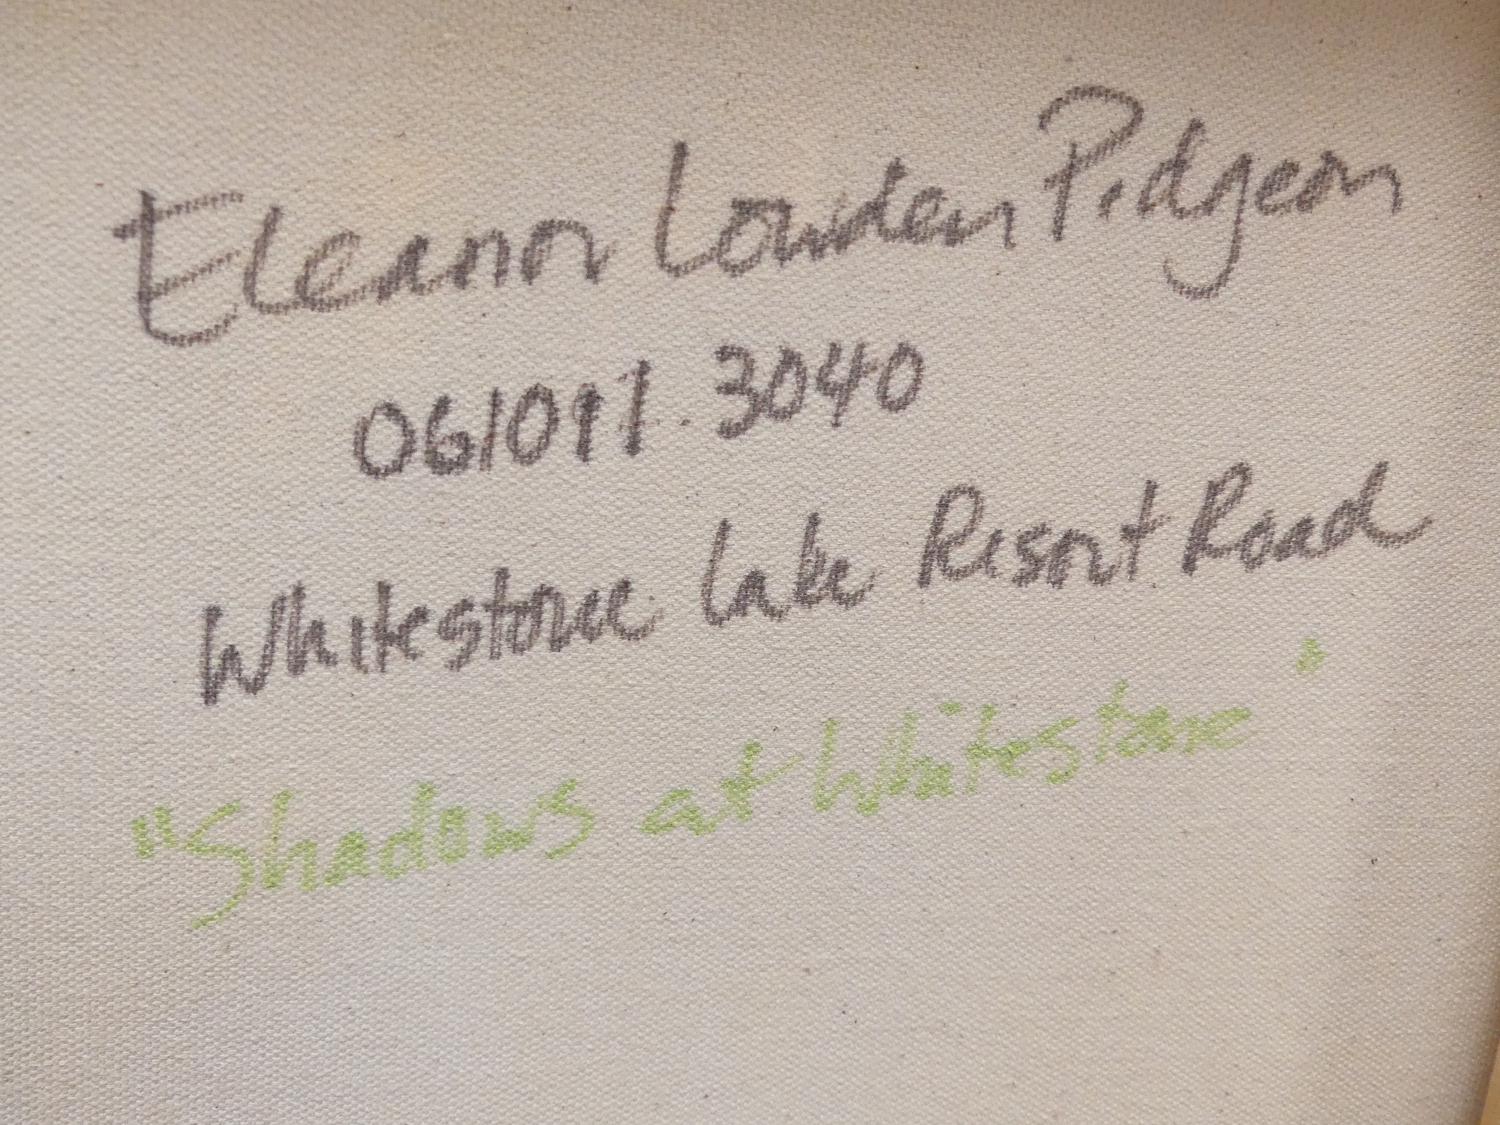 Eleanor Lowden Pidgeon
061091.3040
Whitestone Lake Resort Road
"Shadows at Whitestone"